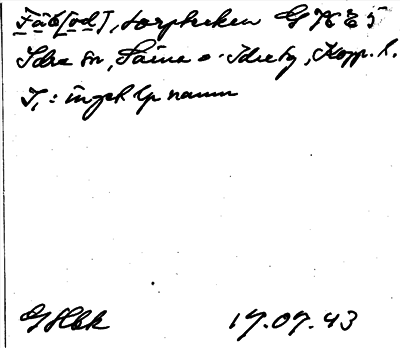 Fäb[od], torplecken G K E 5
Idre sn, Särna o. Idre tg, Kopp. l.
I, : inget lp namn
17.07.43